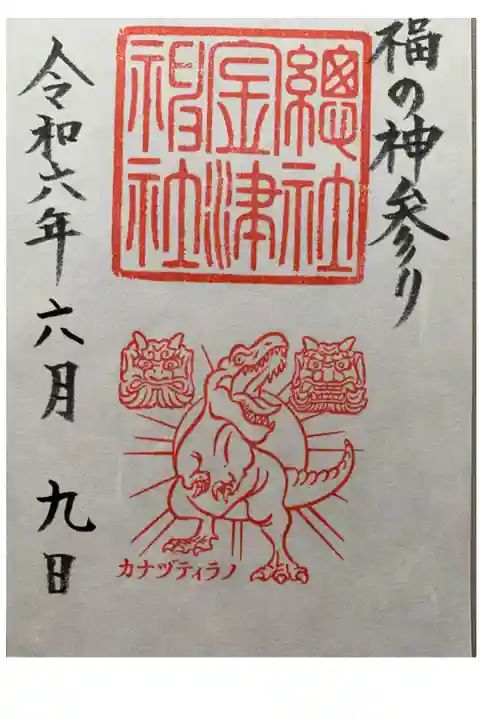 福の神参り
總社
金津
神社
令和六年六月九日
カナヅティラノ